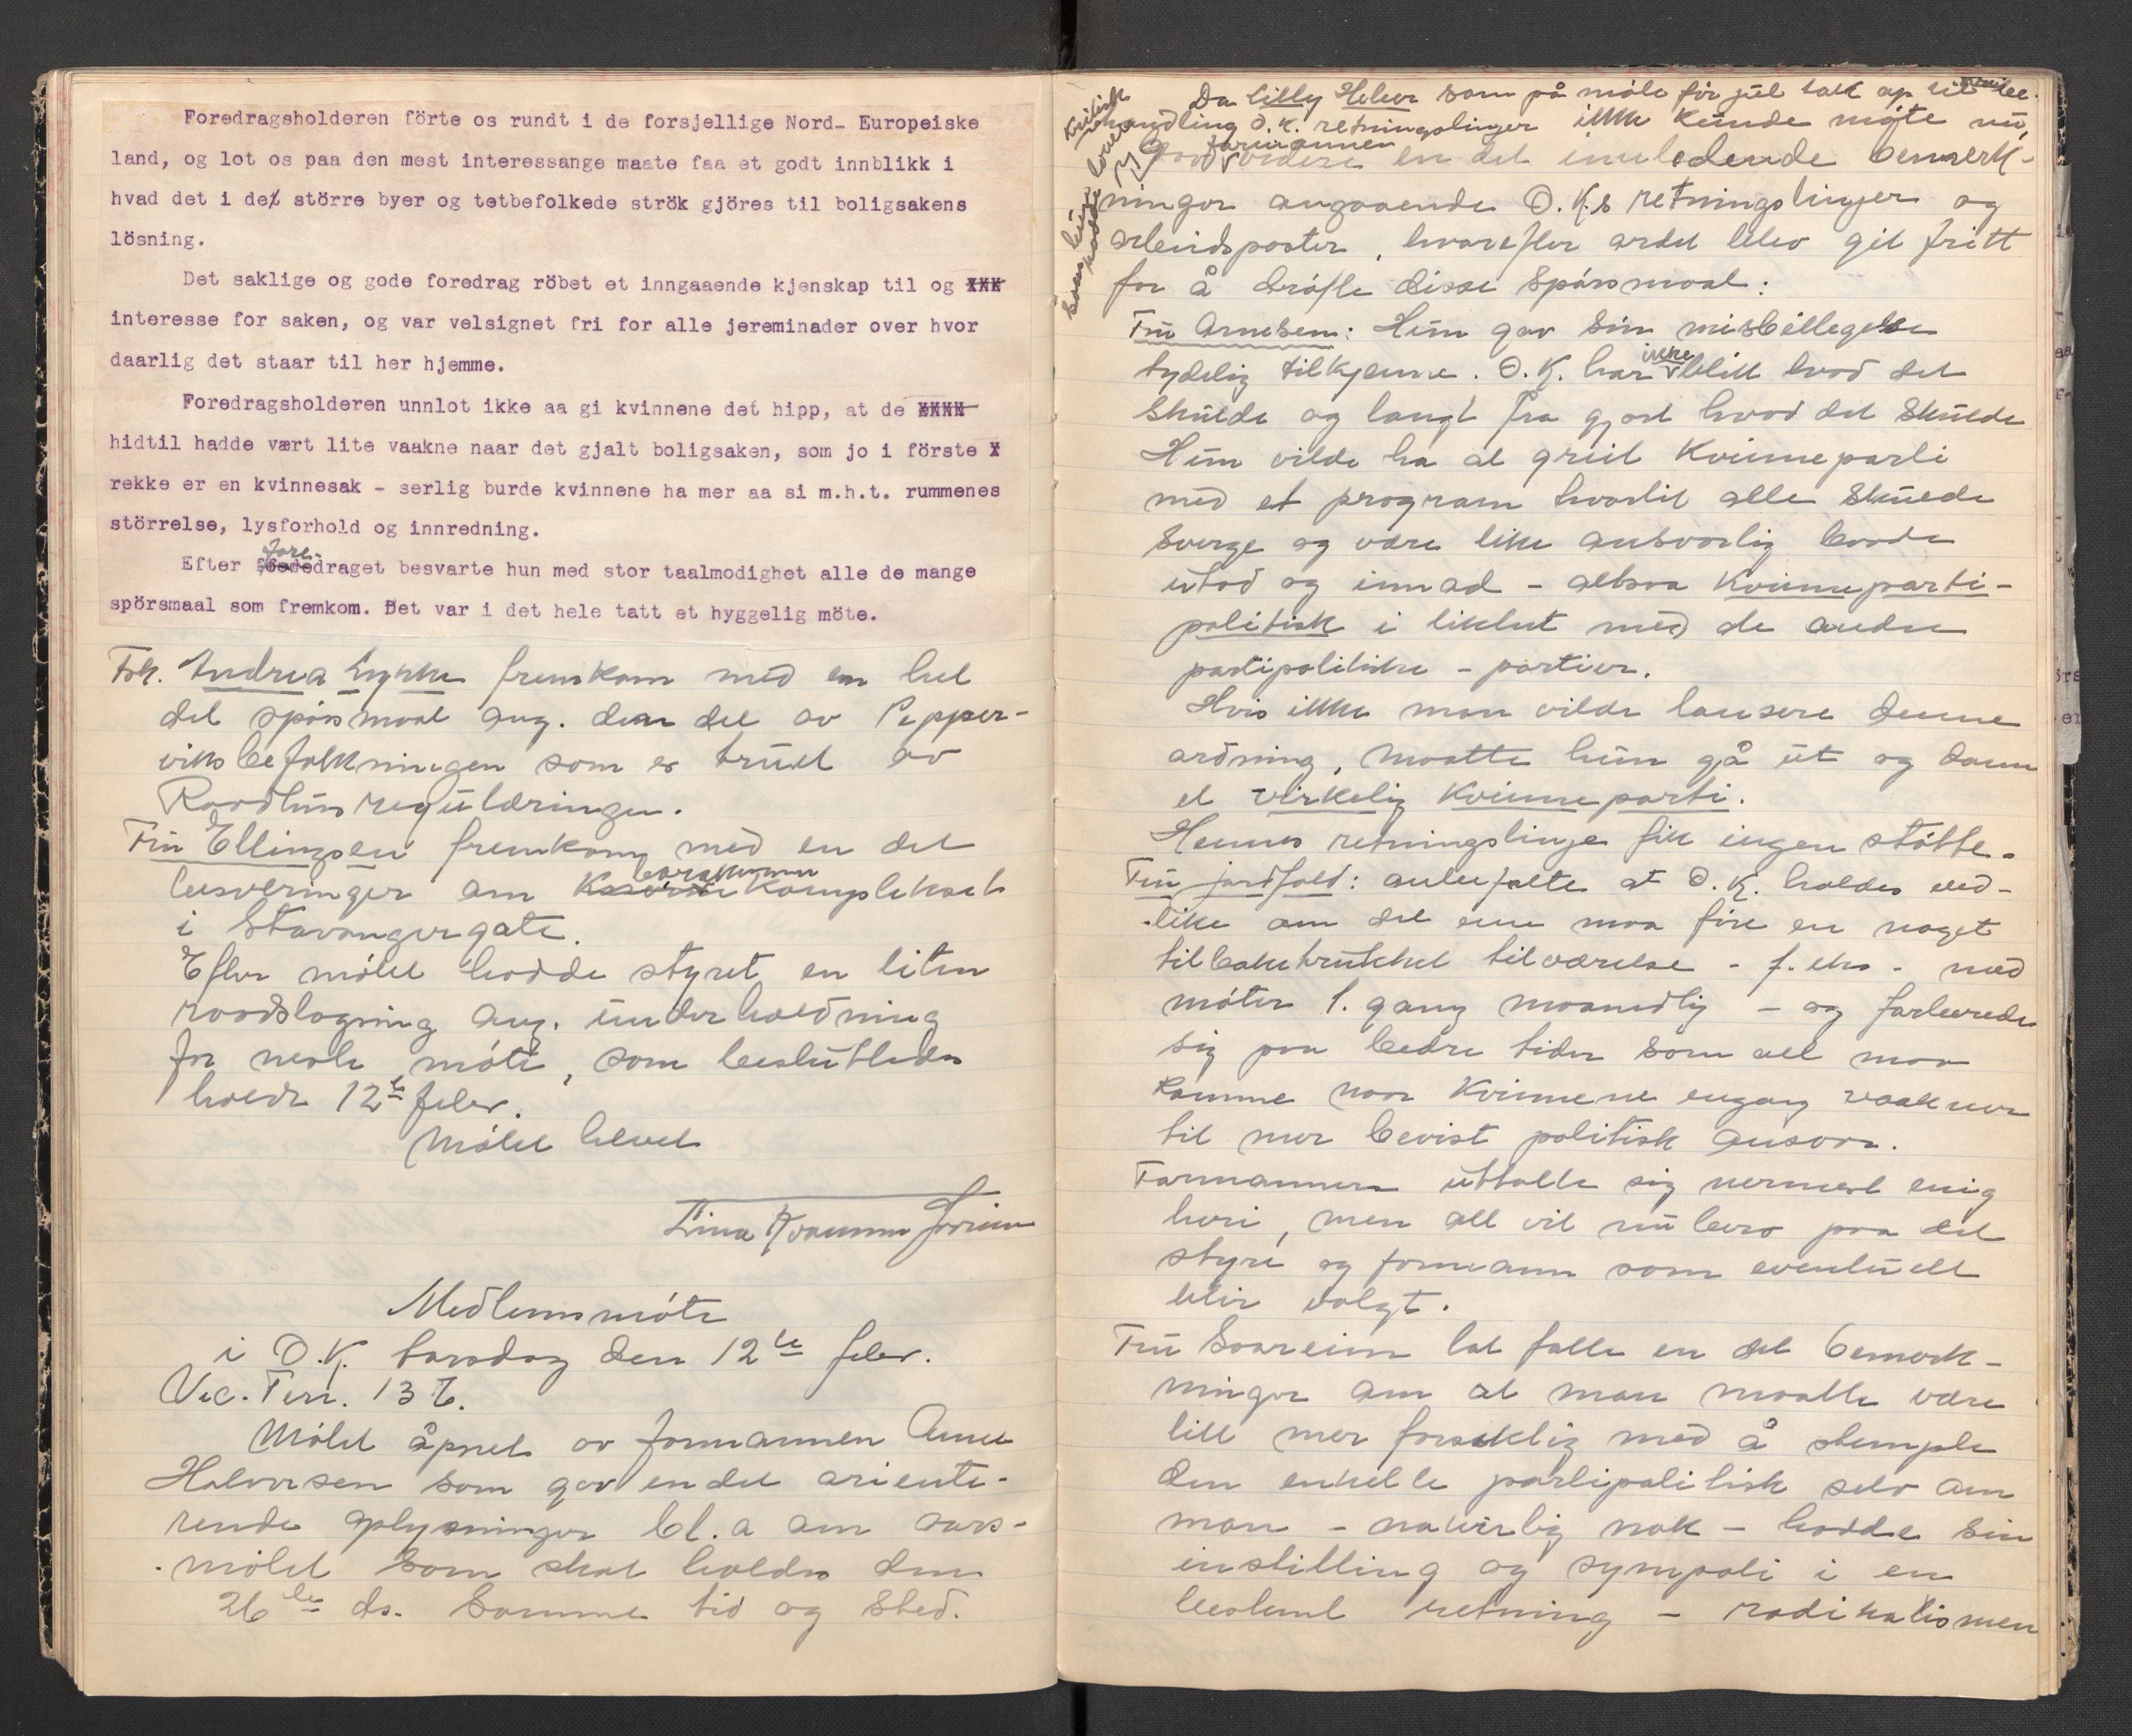 Foredragsholderen förte os rundt i de forsjellige Nord- Europeiske
land, og lot os paa den mest interessange maate faa et godt innblikk i
hvad det i de större byer og tetbefolkede strök gjöres til boligsakens
lösning.
Det saklige og gode foredrag röbet et inngaaende kjenskap til og XXX
interesse for saken, og var velsignet fri for alle jereminader over hvor
daarlig det staar til her hjemme.
Foredragsholderen unnlot ikke aa gi kvinnene det hipp, at de XXXX
hidtil hadde vært lite vaakne naar det gjalt boligsaken, som jo i förste X
rekke er en kvinnesak - serlig burde kvinnene ha mer aa si m.h.t. rummenes
störrelse, lysforhold og innredning.
Efter foredraget besvarte hun med stor taalmodighet alle de mange
spörsmaal som fremkom. Det var i det hele tatt et hyggelig möte.
Frk. Andrea Lykke fremkom med en hel
del spörsmaal ang. den del av Pipper-
viksbefolkningen som er truet av
Raadhusreguleringen.
Fru Ellingsen fremkom med en del
besveringer om barakkene Komplekset
i Stavangergate.
Efter mötet hadde styret en liten
raadslagning ang. underholdning
for neste möte, som besluttedes
holdt 12te febr.
Mötet hevet
Medlemsmöte
i O.K. torsdag den 12te febr.
Vic. Terr. 13 b.
Mötet åpnet av formannen Anna
Halvorsen som gav en del oriente-
rende oplysninger bl.a om aars-
mötet som skal holdes den
26de ds. samme tid og sted.
Da Lilly Heber som på möte för jul tok op til be-
handling O.K. retningslinjer ikke kunde möte nu,
gav formannen en del innledende bemerk-
ninger angaaende O.K.s retningslinjer og
arbeidsposter, hvorefter ordet blev git fritt
for å dröfte disse spörsmaal:
Fru Arnesen: Hun gav sin misbilligelse
tydelig tilkjenne. O.K. har ikke blitt hvad det
skulde og langt fra gjort hvad det skulde
Hun vilde ha et greit Kvinneparti
med et program hvortil alle skulde
sverge og være like ansvarlig baade
utad og innad - altsaa Kvinneparti-
politisk i likhet med de andre
partipolitiske - partier.
Hvis ikke man vilde lansere denne
ordning, maatte hun gå ut og danne
et virkelig Kvinneparti.
Hennes retningslinje fikk ingen stötte.
Fru Jordfald: anbefalte at O.K. holdes ved-
like om det enn maa före en noget
tilbaketrukket tilværelse - f. eks. - med
möter 1. gang maanedlig - og forberede
sig paa bedre tider som all maa
komme naar Kvinnene engang vaakner
til mer bevist politisk ansvar.
Formannen uttalte sig nermest enig
heri, men alt vil nu bero paa det
styre og formann som eventuelt
blir valgt.
Fru Soareim lot falle en del bemerk-
ninger om at man maatte være
litt mer forsiktig med å stemple
den enkelte partipolitisk selv om
man - naturlig nok - hadde sin
instilling og sympati i en
bestemt retning - radikalismen